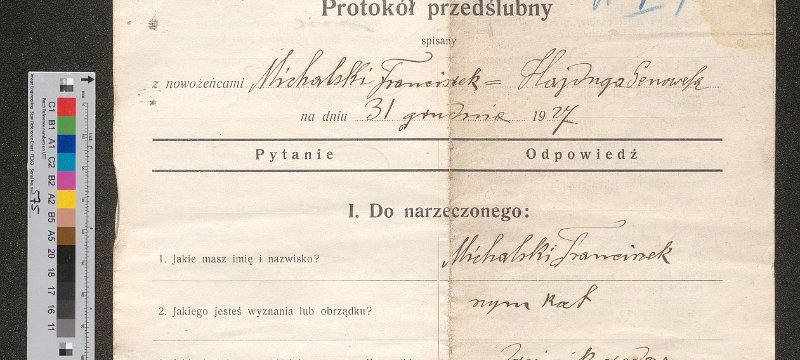 Protokół przedślubny
spisany
z nowożeńcami Michalski Franciszek = Hajduga Genowefą
na dniu 31 grudnia 1927
Pytanie Odpowiedź
I. Do narzeczonego:
1. Jakie masz imię i nazwisko? Michalski Franciszek
2. Jakiego jesteś wyznania lub obrządku? rzym kat
C1 B1 A1 C2 B2 A2 B5 A5 20 18 17 16 11
575